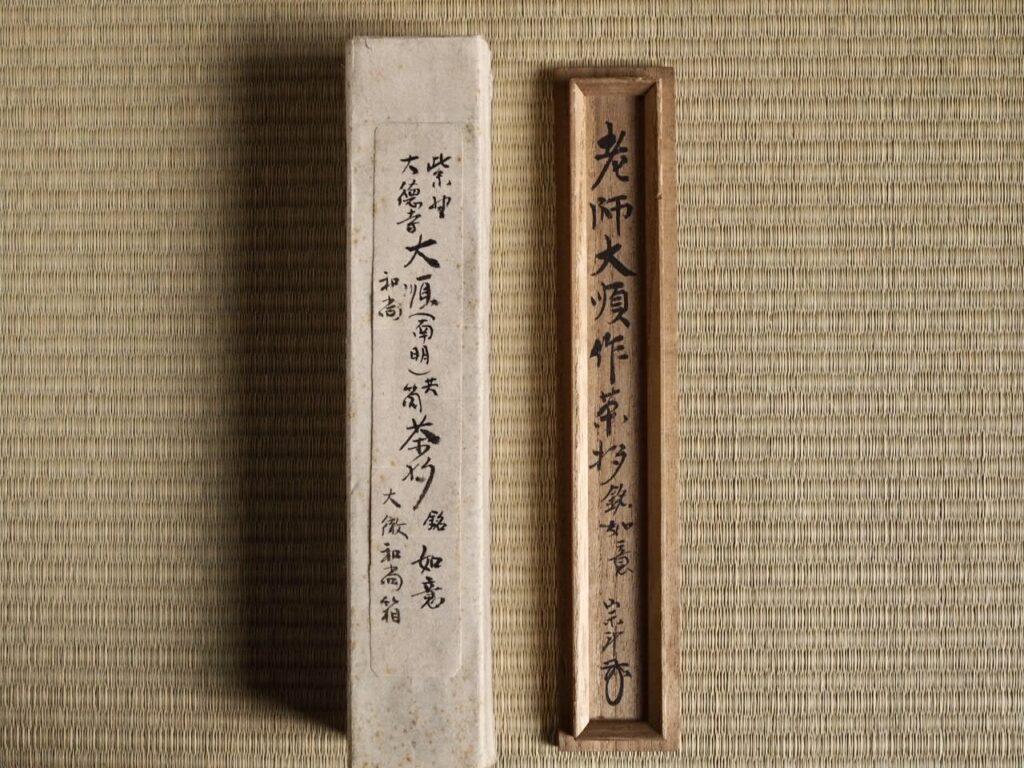 老師大順作茶杓銘如意 宗斗
紫野
大徳寺
大順(南明)共筒茶杓 銘 如意
和尚
大徹和尚箱